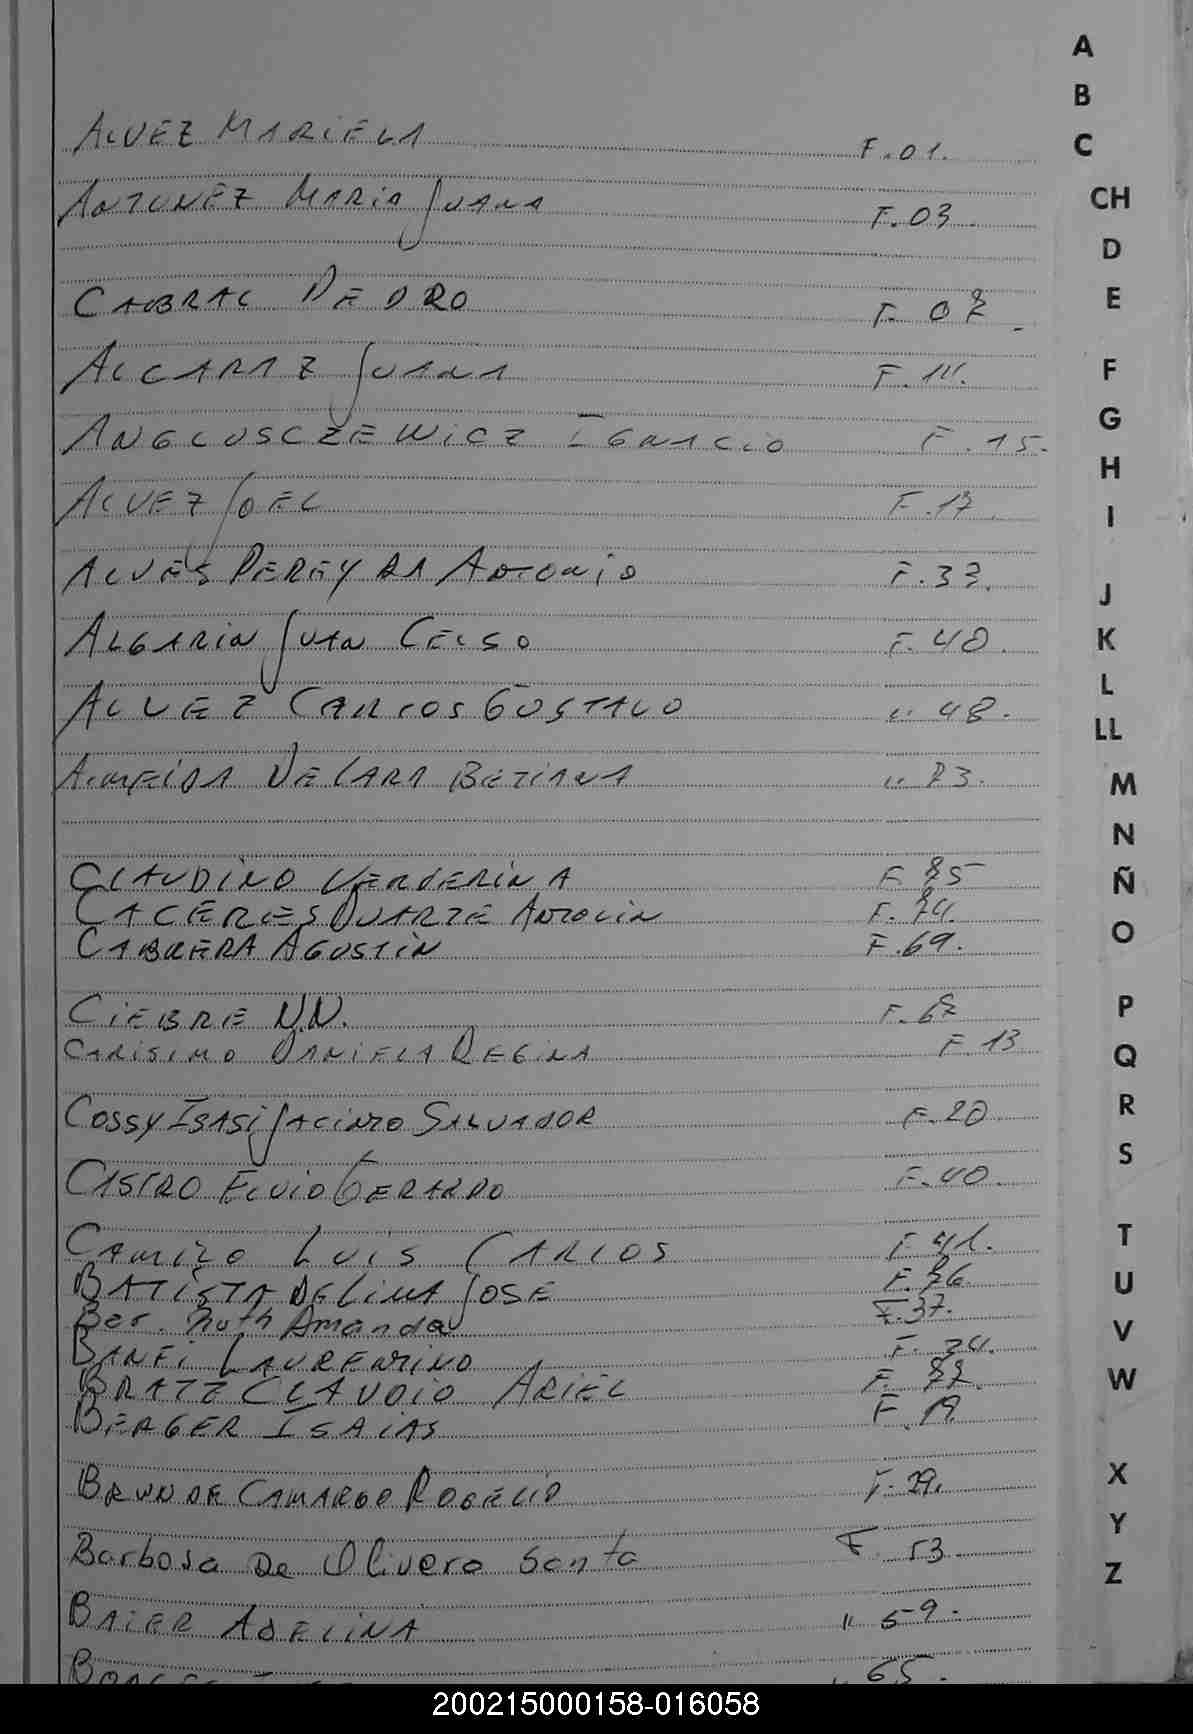 ALVEZ MARIELA F.01.
ANTUNEZ MARIA JUANA F.03
CABRAL PEDRO F. 07.
ALCARAZ JUANA F.14.
ANGLUSCZEWICZ IGNACIO F.15.
ALVEZ JOEL F.17.
ALVES PEREYRA ANTONIO F.33.
ALGARIN JUAN CELSO F.40.
ALVEZ CARLOS GUSTAVO " 48.
ALMEIDA DE LARA BETIANA " 73.
CLAUDINO VERVERINA F 75
CACERES DUARTE ANTOLIN F.74.
CABRERA AGUSTIN F.69.
CIEBRE N.N. F.67
CARISIMO DANIELA REGINA F.13
COSSY ISASI JACINTO SALVADOR F.20
CASTRO ELVIO GERARDO F.40.
CAMIZO LUIS CARLOS F 41.
BATISTA DE LIMA JOSE F.76.
Ber. Ruth Amanda F.37.
BANFI LAURENTINO F. 24.
BRATZ CLAUDIO ARIEL F. 77.
BERGER ISAIAS F.19.
BRUN DE CAMARGO ROGELIO F.29.
Barbosa De Olivera Santa F. 53.
BAIER ADELINA " 59.
" 65.
A
B
C
CH
D
E
F
G
H
I
J
K
L
LL
M
N
Ñ
O
P
Q
R
S
T
U
V
W
X
Y
Z
200215000158-016058